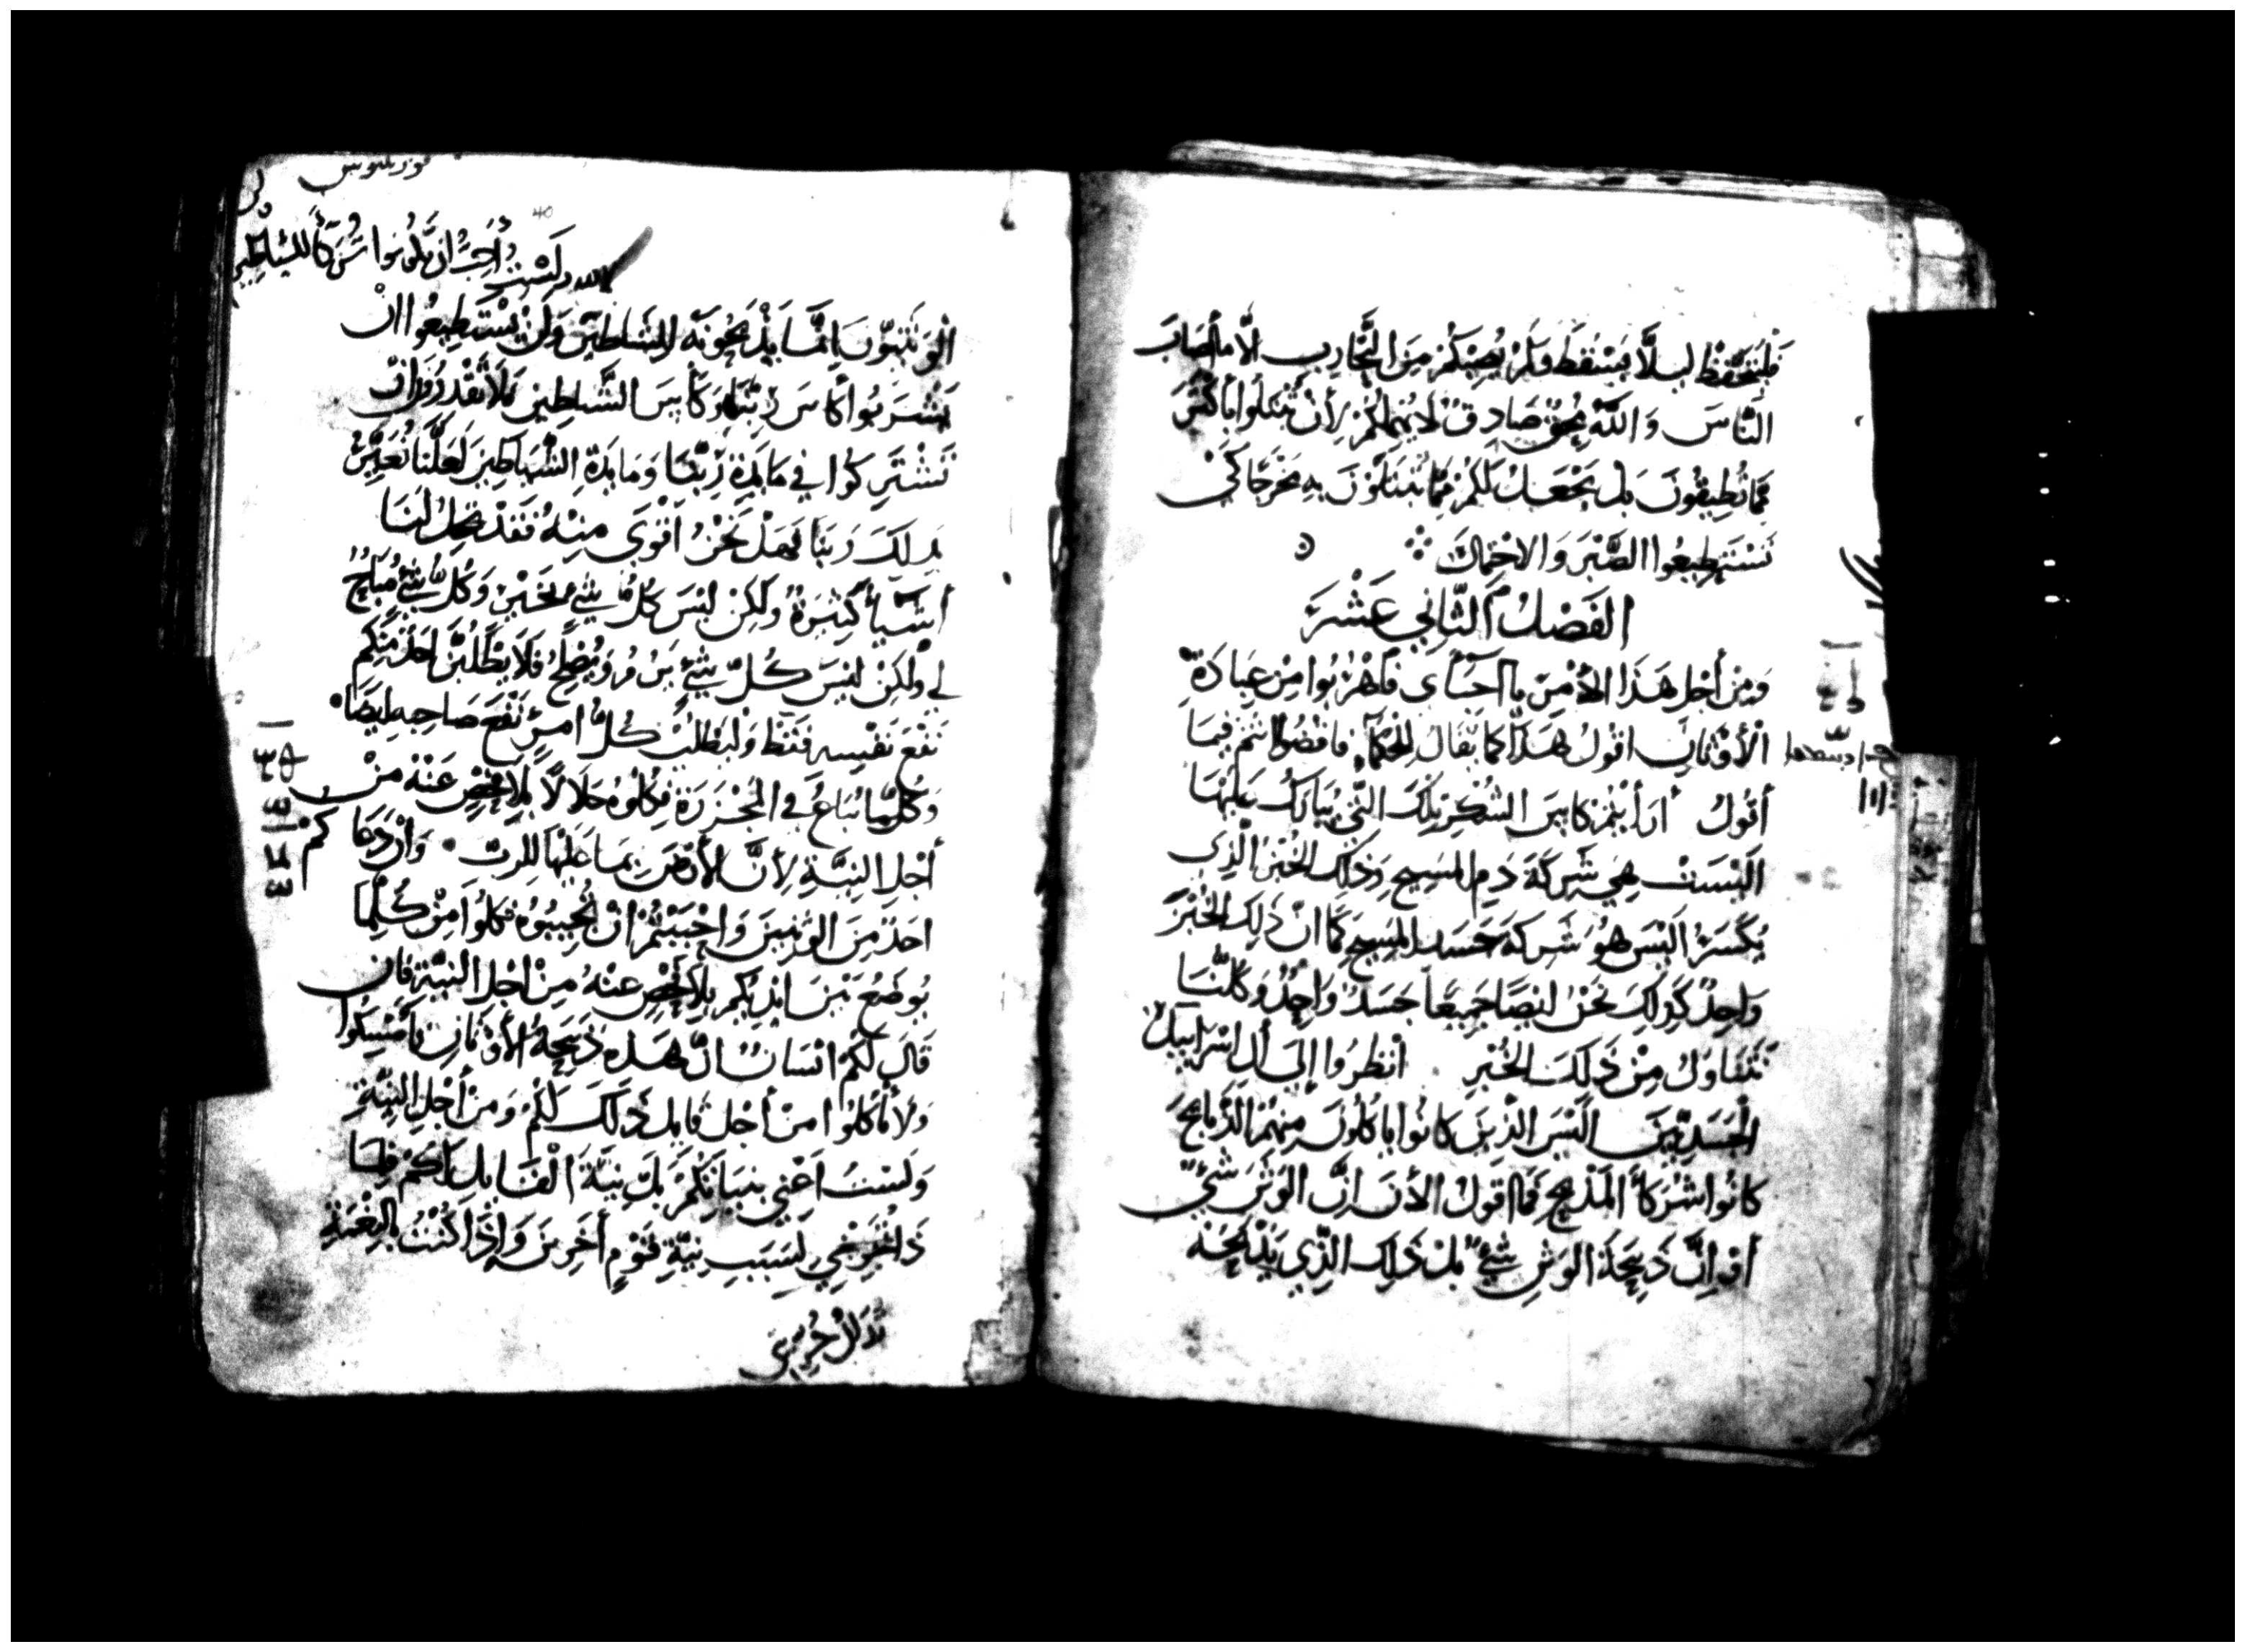 فليتحفظ ليلا يسقط ولم يصبكم من التجارب الا ما اصاب
الناس والله محق صادق لا يهملكم لأن تبتلوا باكثر
مما تطيقون بل يجعل لكم مما تبتلون به مخرجا كي
تستطيعوا الصبر والاحتمال
الفصل الثاني عشر
ومن أجل هذا الأمر يا احبائي فأهربوا من عبادة
الأوثان اقول هذا كما يقال للحكماء فاقضوا انتم فيما
أقول أرأيتم كاس الشكر تلك التي يبارك عليها
أليست هي شركة دم المسيح وذلك الخبز الذي
يكسر أليس هو شركة جسد المسيح كما ان ذلك الخبز
واحد كذلك نحن ايضا جميعا جسد واحد وكلنا
نتناول من ذلك الخبز انظروا إلى أل اسراييل
الجسديين أليس الذين كانوا ياكلون منهم الذبايح
كانوا شركأ المذبح فما اقول الأن ان الوثن شيء
أو ان ذبيحة الوثن شيء بل ذلك الذي يذبحه
ولست أحب ان تكونوا شركأ للشياطين
الوثنيون انما يذبحونه للشياطين ولن يستطيعوا ان
تشربوا كاس ربنا وكاس الشياطين فلا تقدرون ان
تشتركوا في مايدة ربنا ومايدة الشياطين لعلنا نغير
بذلك ربنا فهل نحن اقوى منه فقد تحل لنا
أشيأ كثيرة ولكن ليس كل شي بخير وكل شي مباح
لي ولكن ليس كل شي يبر ويصلح فلا يطلبن احد منكم
نفع نفسه فقط وليطلب كل امرئ نفع صاحبه ايضا
وكلما يباع في المجزرة فكلوه حلالا بلا فحص عنه من
أجل النية لأن الأرض بما عليها للرب وان دعاكم
احد من الوثنيين واحببتم ان تجيبوه فكلوا من كلما
يوضع بين ايديكم بلا فحص عنه من اجل النية فان
قال لكم انسان ان هذه ذبيحة الأوثان فامسكوا
ولا تأكلوا من أجل قايل ذلك لكم ومن أجل النية
ولست اعني بنياتكم بل نية القايل لكم فلما
ذا تحرجني لسبب نية قوم أخرين وإذا كنت بالنعمة